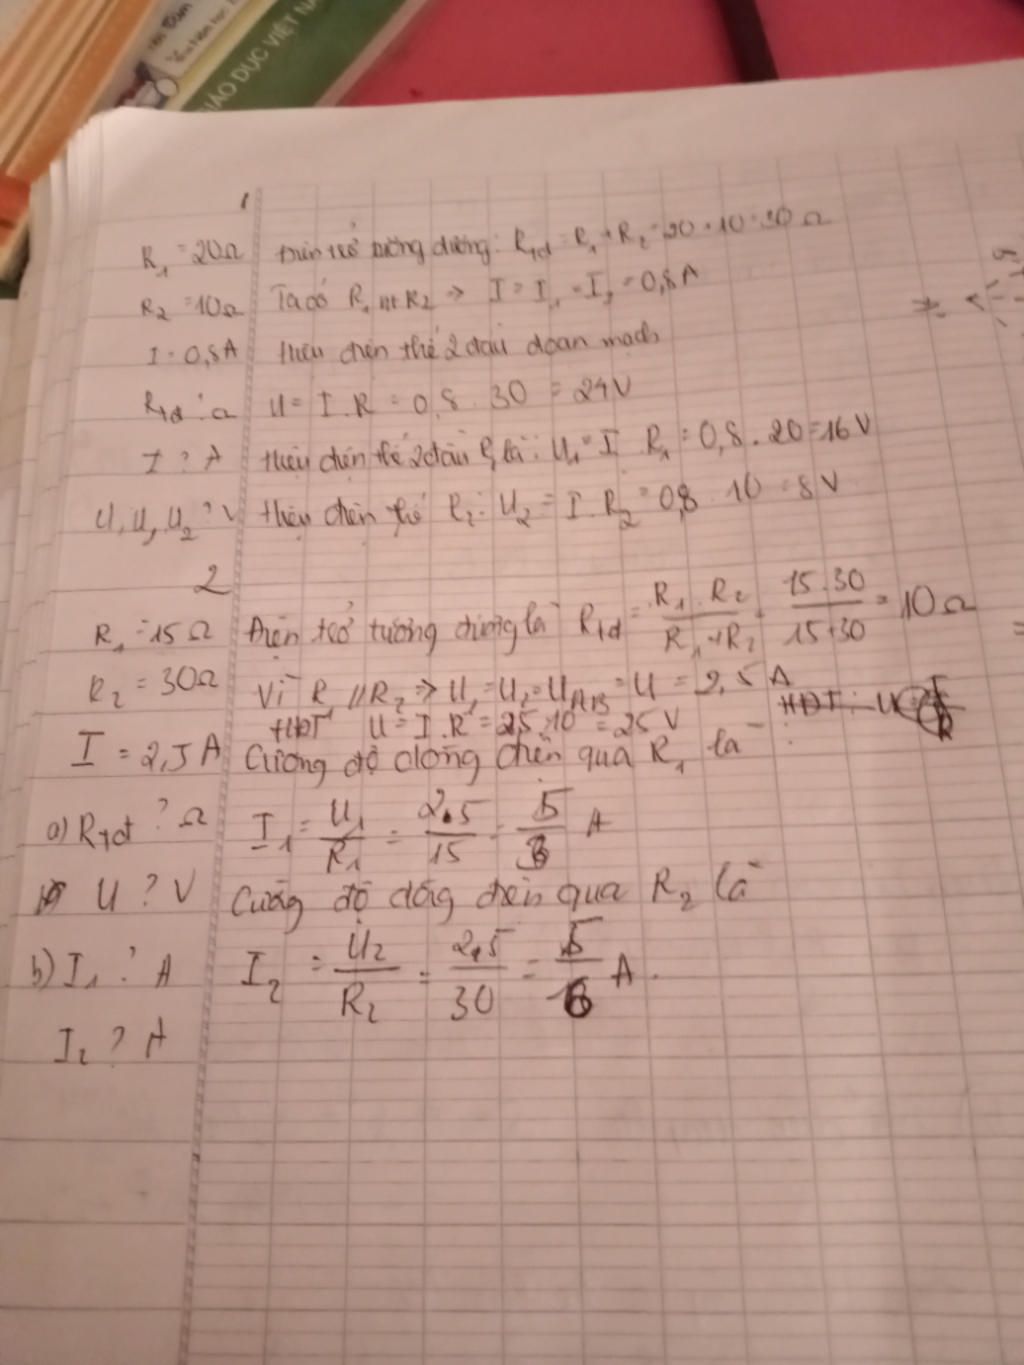 GIÁO DỤC VIỆT NA
1
R₁ = 20Ω Điện trở tương đương: Rtđ = R₁ + R₂ = 20 + 10 = 30 Ω
R₂ = 10Ω Ta có R₁ nt R₂ => I = I₁ = I₂ = 0,8A
I = 0,8A Hiệu điện thế 2 đầu đoạn mạch
Rtđ ? Ω U = I . R = 0,8 . 30 = 24V
I ? A Hiệu điện thế 2 đầu R₁ là: U₁ = I . R₁ = 0,8 . 20 = 16V
U, U₁, U₂ ? V Hiệu điện thế R₂: U₂ = I . R₂ = 0,8 . 10 = 8V
2
R₁ = 15 Ω Điện trở tương đương là Rtđ = R₁ . R₂ / R₁ + R₂ = 15.30 / 15+30 = 10Ω
R₂ = 30Ω Vì R₁ // R₂ => U₁ = U₂ = UAB = U = 2,5 A
HĐT U = I . R = 2,5.10 = 25 V
I = 2,5 A Cường độ dòng điện qua R₁ là :
a) Rtđ ? Ω I₁ = U₁ / R₁ = 2.5 / 15 = 5 / 3 A
U ? V Cường độ dòng điện qua R₂ là
b) I₁ ? A I₂ = U₂ / R₂ = 2,5 / 30 = 5 / 6 A .
I₂ ? A